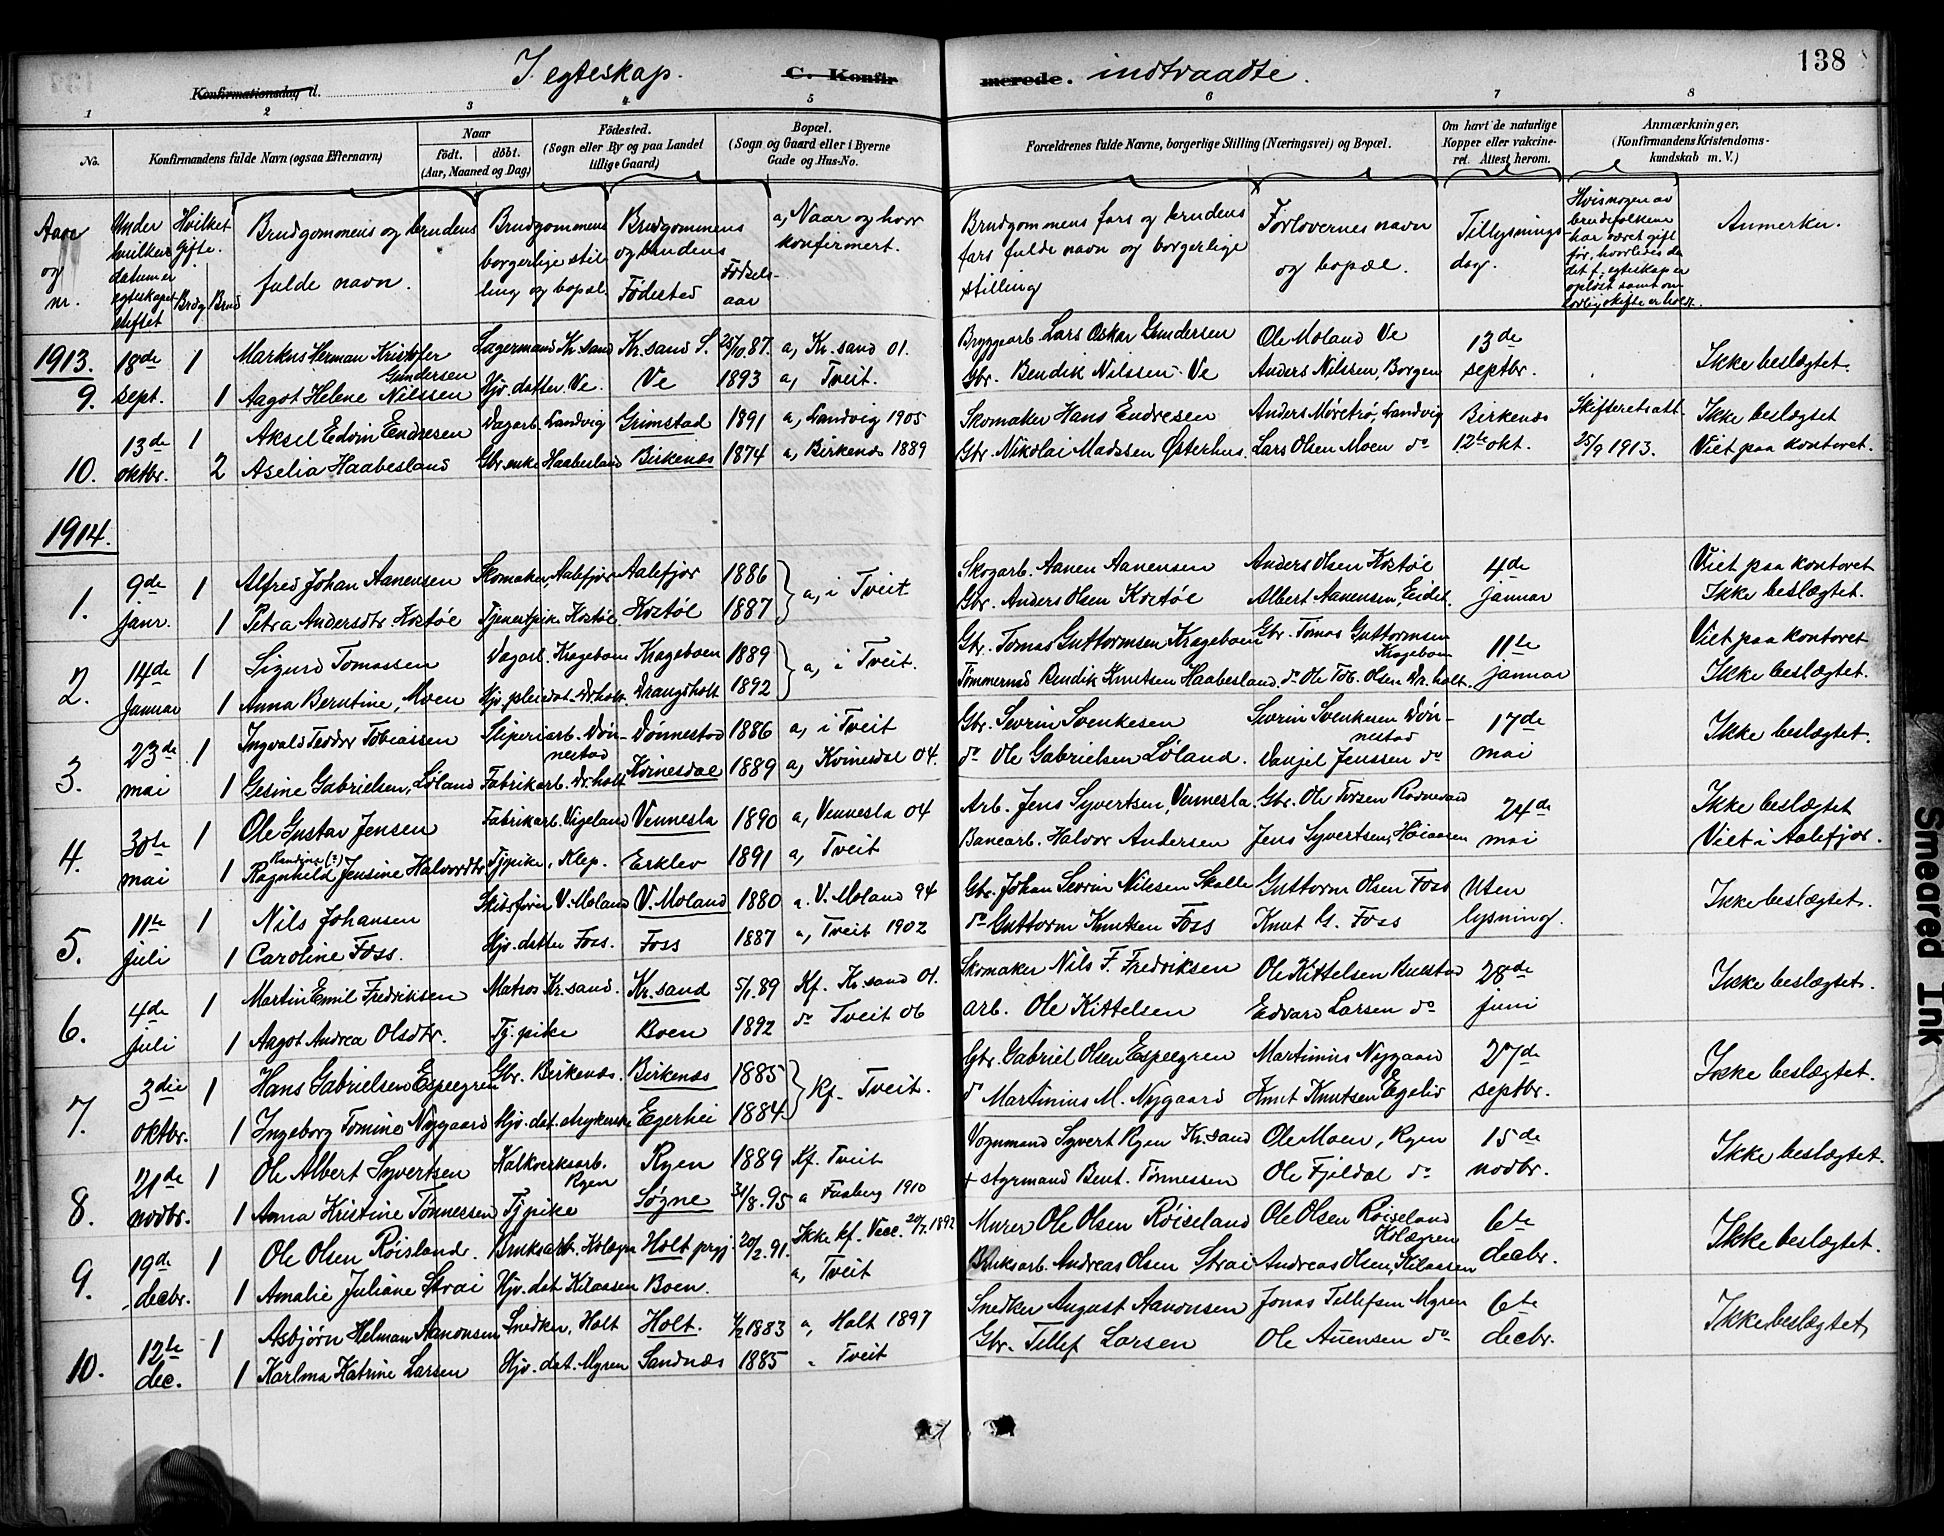 138
I egteskap. C. Konfirmerede. indtraadte.
Konfirmationsdag d.
1 2 3 4 5 6 7 8
No. Konfirmandens fulde Navn (ogsaa Efternavn)
Naar født. døbt. (Aar, Maaned og Dag)
Fødested. (Sogn eller By og paa Landet tillige Gaard)
Bopæl. (Sogn og Gaard eller i Byerne Gade og Hus-No.
Forældrenes fulde Navne, borgerlige Stilling (Næringsvei) og Bopæl.
Om havt de naturlige Kopper eller vakcineret. Attest herom.
Anmærkninger, (Konfirmandens Kristendomskundskab m. V.)
Aar og nr.
Under hvilken datum er egteskapet stiftet
Hvilket gifte. Brudg. Brud
Brudgommens og brudens fulde navn.
Brudgommens borgerlige stilling og bopæl.
Brudgommens og brudens Fødested Fødselsaar
a, Naar og hvor konfirmert.
Brudgommens fars og brudens fars fulde navn og borgerlige stilling
Forlovernes navn og bopæl.
Tillysningsdag.
Hvis nogen av brudefolkene har været gift før, hvorledes de det f. egteskap er opløst samt om lovlig skifte er holdt.
Anmerkn.
1913. 18de 1 Markus Herman Kristofer Gundersen Lagermand Kr.sand Kr.sand S. 25/10.87. a, Kr.sand 01. Bryggearb. Lars Oskar Gundersen Ole Moland Ve 13de
9. sept. 1 Aagot Helene Nilssen Hjv. datter. Ve. Ve 1893 a, Tveit. Gbr. Bendik Nilssen Ve Anders Nilssen, Borgen septbr. Ikke beslægtet.
13de 1 Aksel Edvin Endresen Dagarb. Landvig Grimstad 1891 a, Landvig 1905 Skomaker Hans Endresen Anders Møretrø, Landvig Birkenes Skifteretsatt. Ikke beslægtet
10. oktbr. 2 Aselia Haabesland Gbr.enke Haabesland Birkenes 1874 a, Birkenes 1889 Gbr. Nikolai Madssen Østerhus. Lars Olsen Moen do 12te okt. 25/9 1913. Viet paa kontoret.
1914.
9de 1 Alfred Johan Aanensen Skomaker, Aalefjær Aalefjær 1886 Skogarb. Aanen Aanensen Anders Olsen Kostøl 4de Viet paa kontoret
1. janr. 1 Petra Andersdtr Kostøl Tjenestpike Kostøl Kostøl 1887 a, i Tveit. Gbr. Anders Olsen Kostøl Albert Aanensen, Eidet. januar Ikke beslægtet.
14de 1 Sigurd Tomassen Dagarb. Krageboen Krageboen 1889 Gbr. Tomas Guttormsen Krageboen Gbr. Tomas Guttormsen Krageboen 11te Viet paa kontoret
2. Januar 1 Anna Berntine, Moen Hjv. pleiedat. Dr.holt. Drangsholt 1892 a, i Tveit. Tømmermd Bendik Knutsen Haabesland. do Ole Tob. Olsen Dr.holt. januar Ikke beslægtet.
23de 1 Ingvald Teodor Tobiassen Sliperiarb. Dønnestad Dønnestad 1886 a, i Tveit Gbr. Sevrin Svenkesen Sevrin Svenkesen Dønnestad 17de
3. mai 1 Gesine Gabrielsen, Løland Fabrikarb. Dr.holt Kvinesdal 1889 a, Kvinesdal 04. do Ole Gabrielsen Løland. Danjel Jenssen do mai Ikke beslægtet.
30te 1 Ole Gustav Jensen Fabrikarb. Vigeland Vennesla 1890 a, Vennesla 04 Arb. Jens Syvertsen, Vennesla. Gbr. Ole Torsen Rodnevand 24de Ikke beslægtet
4. mai 1 Ragnhild Jensine Halvordtr. Tjpike, Klep. Erklev 1891 a, Tveit Banearb. Halvor Andersen Jens Syvertsen, Høiaasen mai Viet i Aalefjær.
11te 1 Nils Johansen Skibsfører V. Moland V. Moland 1880 a. V. Moland 94 Gbr. Johan Sevrin Nilsen Skalle Guttorm Olsen Foss Uten
5. juli 1 Caroline Foss. Hjv. datter Foss. Foss 1887 a, Tveit 1902 do Guttorm Knutsen Foss Knut G. Foss lysning. Ikke beslægtet.
4de 1 Martin Emil Fredriksen Matros Kr.sand. Kr.sand 5/1.89 Kf. Kr.sand 01. Skomaker Nils F. Fredriksen Ole Kittelsen Kulstad 28de
6. juli 1 Aagot Andrea Olsdtr. Tj.pike Boen 1892 do Tveit 06 arb. Ole Kittelsen Edvard Larsen do juni Ikke beslægtet.
3die 1 Hans Gabrielsen Espegren Gbr. Birkenes. Birkenes 1885 Gbr. Gabriel Olsen Espegren Martinius Nygaard 27de
7. oktbr. 1 Ingeborg Tomine Nygaard Hjv. dat. Egerhei 1884. Kf. Tveit. do Martinius M. Nygaard Knut Knutsen Egelid septbr. Ikke beslægtet.
21de 1 Ole Albert Syvertsen Kalkverksarb. Ryen Ryen 1889 Kf. Tveit Vognmand Syvert Ryen Kr.sand Ole Moen, Ryen 15de
8. novbr. 1 Anna Kristine Tønnessen Tjpike Søgne 31/8.95 a Faaberg 1910 + styrmand Bent. Tønnessen Ole Fjeldal do novbr. Ikke beslægtet.
19d 1 Ole Olsen Røisland. Bruksarb. Kolægren Holt prgj. 20/2.91. Ikke kf. Vacc. 20/7.1892 Murer Ole Olsen Røiseland Ole Olsen Røiseland Kolægren 6te
9. decbr. 1 Amalie Juliane Strai Hjv. dat Kilaasen Boen. a, Tveit Bruksarb. Andreas Olsen Strai Andreas Olsen, Kilaasen decbr. Ikke beslægtet.
12te 1 Asbjørn Helman Aanonsen Snedker, Holt Holt. 1/2 1883 a, Holt 1897 Snedker August Aanonsen Jonas Tellefsen Myren 6te
10. dec. 1 Karlma Katrine Larsen Hjv. dat. Myren Sandnes 1885 " Tveit Gbr. Tellef Larsen Ole Auensen do decbr. Ikke beslægtet,
Smeared Ink